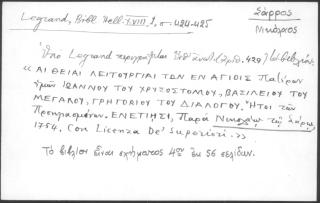 Legrand, Bibl. Hell. XVIII, 1, σ. 424-425
Σάρρος
Νικόλαος
Ὑπὸ Legrand περιγράφεται ὑπ' ἀριθ. 429 τὸ βιβλίον
«ΑΙ ΘΕΙΑΙ ΛΕΙΤΟΥΡΓΙΑΙ ΤΩΝ ΕΝ ΑΓΙΟΙΣ Πατέρων
ἡμῶν ΙΩΑΝΝΟΥ ΤΟΥ ΧΡΥΣΟΣΤΟΜΟΥ, ΒΑΣΙΛΕΙΟΥ ΤΟΥ
ΜΕΓΑΛΟΥ, ΓΡΗΓΟΡΙΟΥ ΤΟΥ ΔΙΑΛΟΓΟΥ. Ἤτοι τῶν
Προηγιασμένων. ΕΝΕΤΙΗΣΙ, Παρὰ Νικολάῳ τῷ Σάρῳ,
1754, Con Licenza De' Superiori.»
Τὸ βιβλίον εἶναι σχήματος 4ου ἐκ 56 σελίδων.